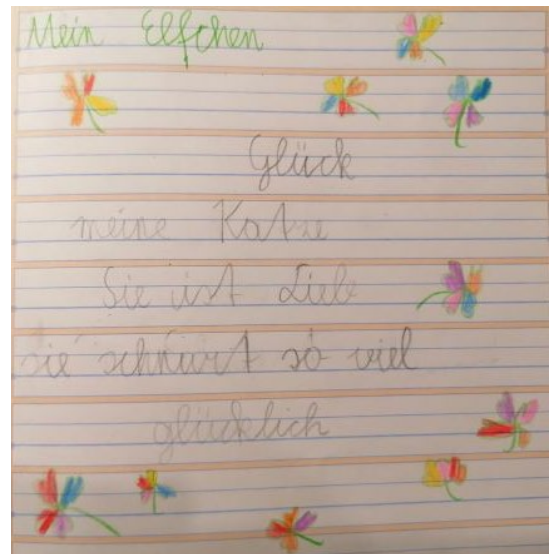 Mein Elfchen
Glück
meine Katze
Sie ist Lieb
sie schnurt so viel
glücklich